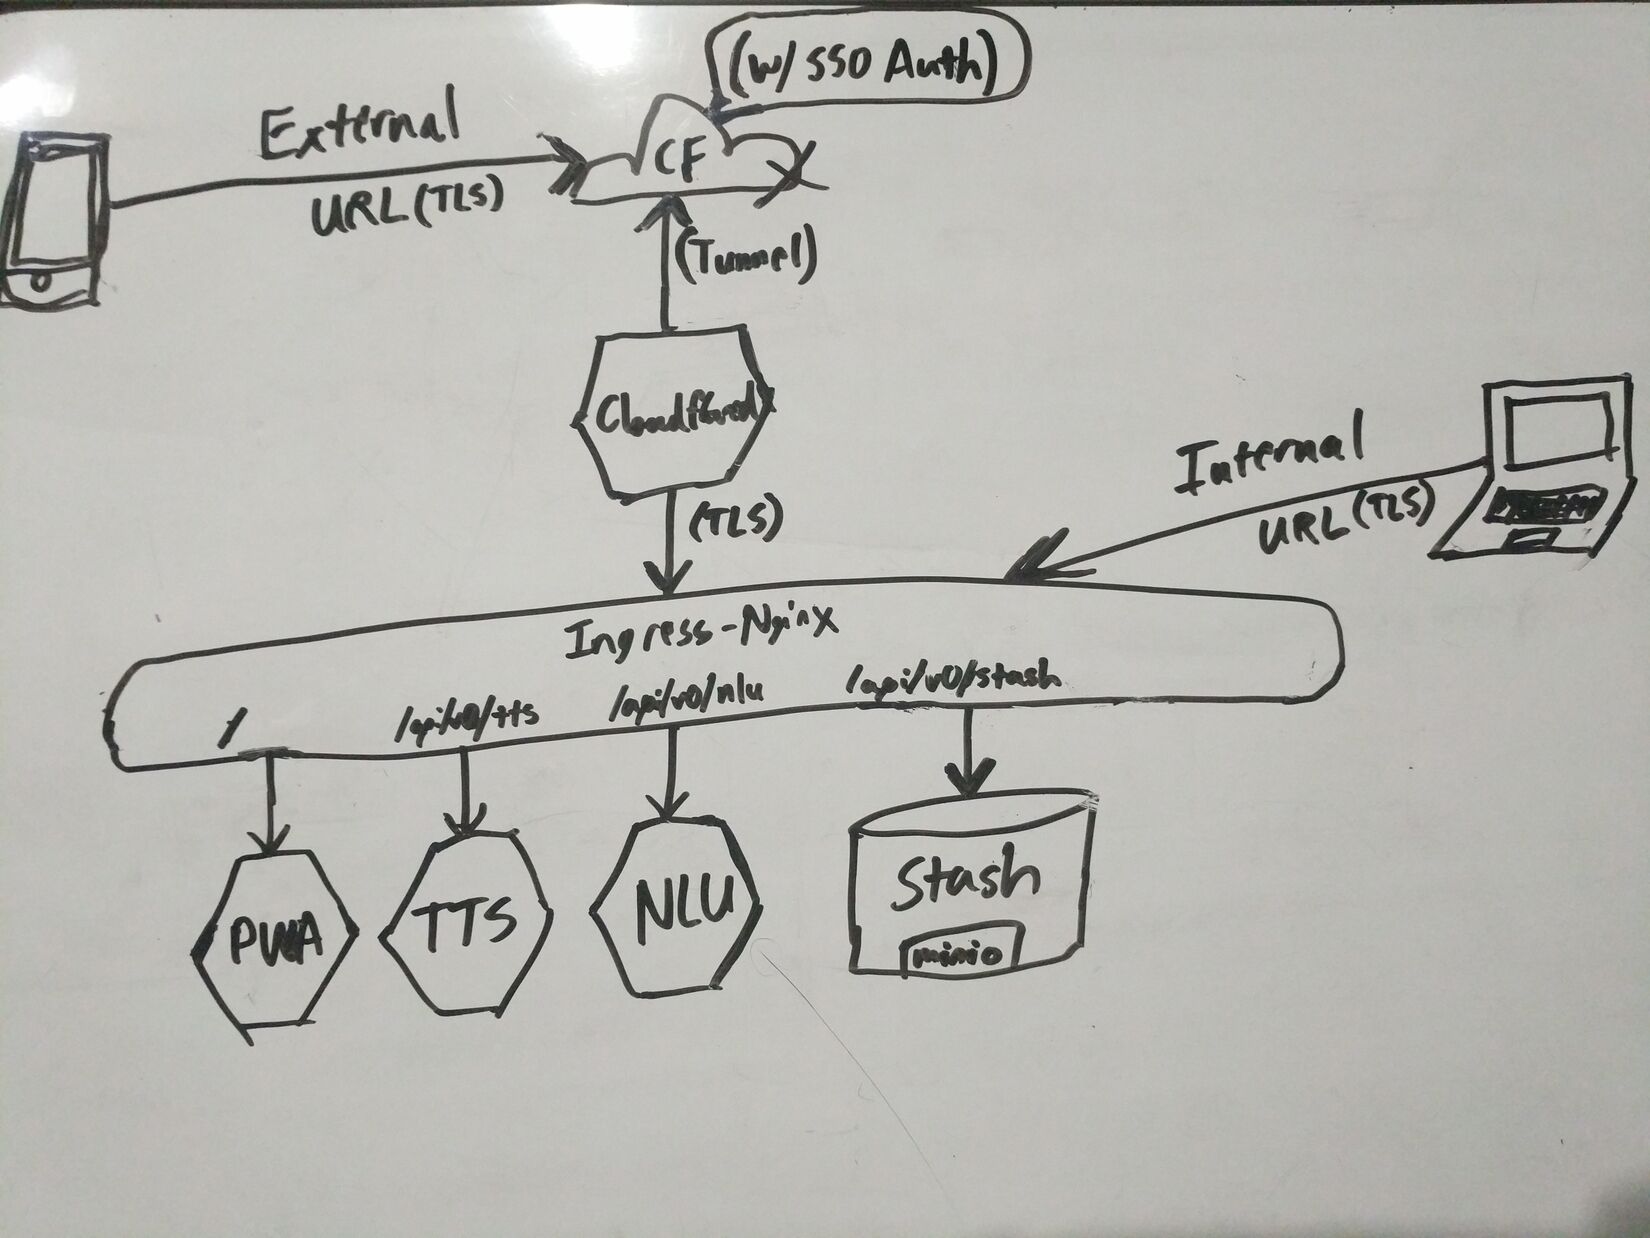 (w/ SSO Auth)
External
URL (TLS)
CF
(Tunnel)
Cloudflared
(TLS)
Internal
URL (TLS)
Ingress-Nginx
/
/api/v0/tts
/api/v0/nlu
/api/v0/stash
PWA
TTS
NLU
Stash
minio